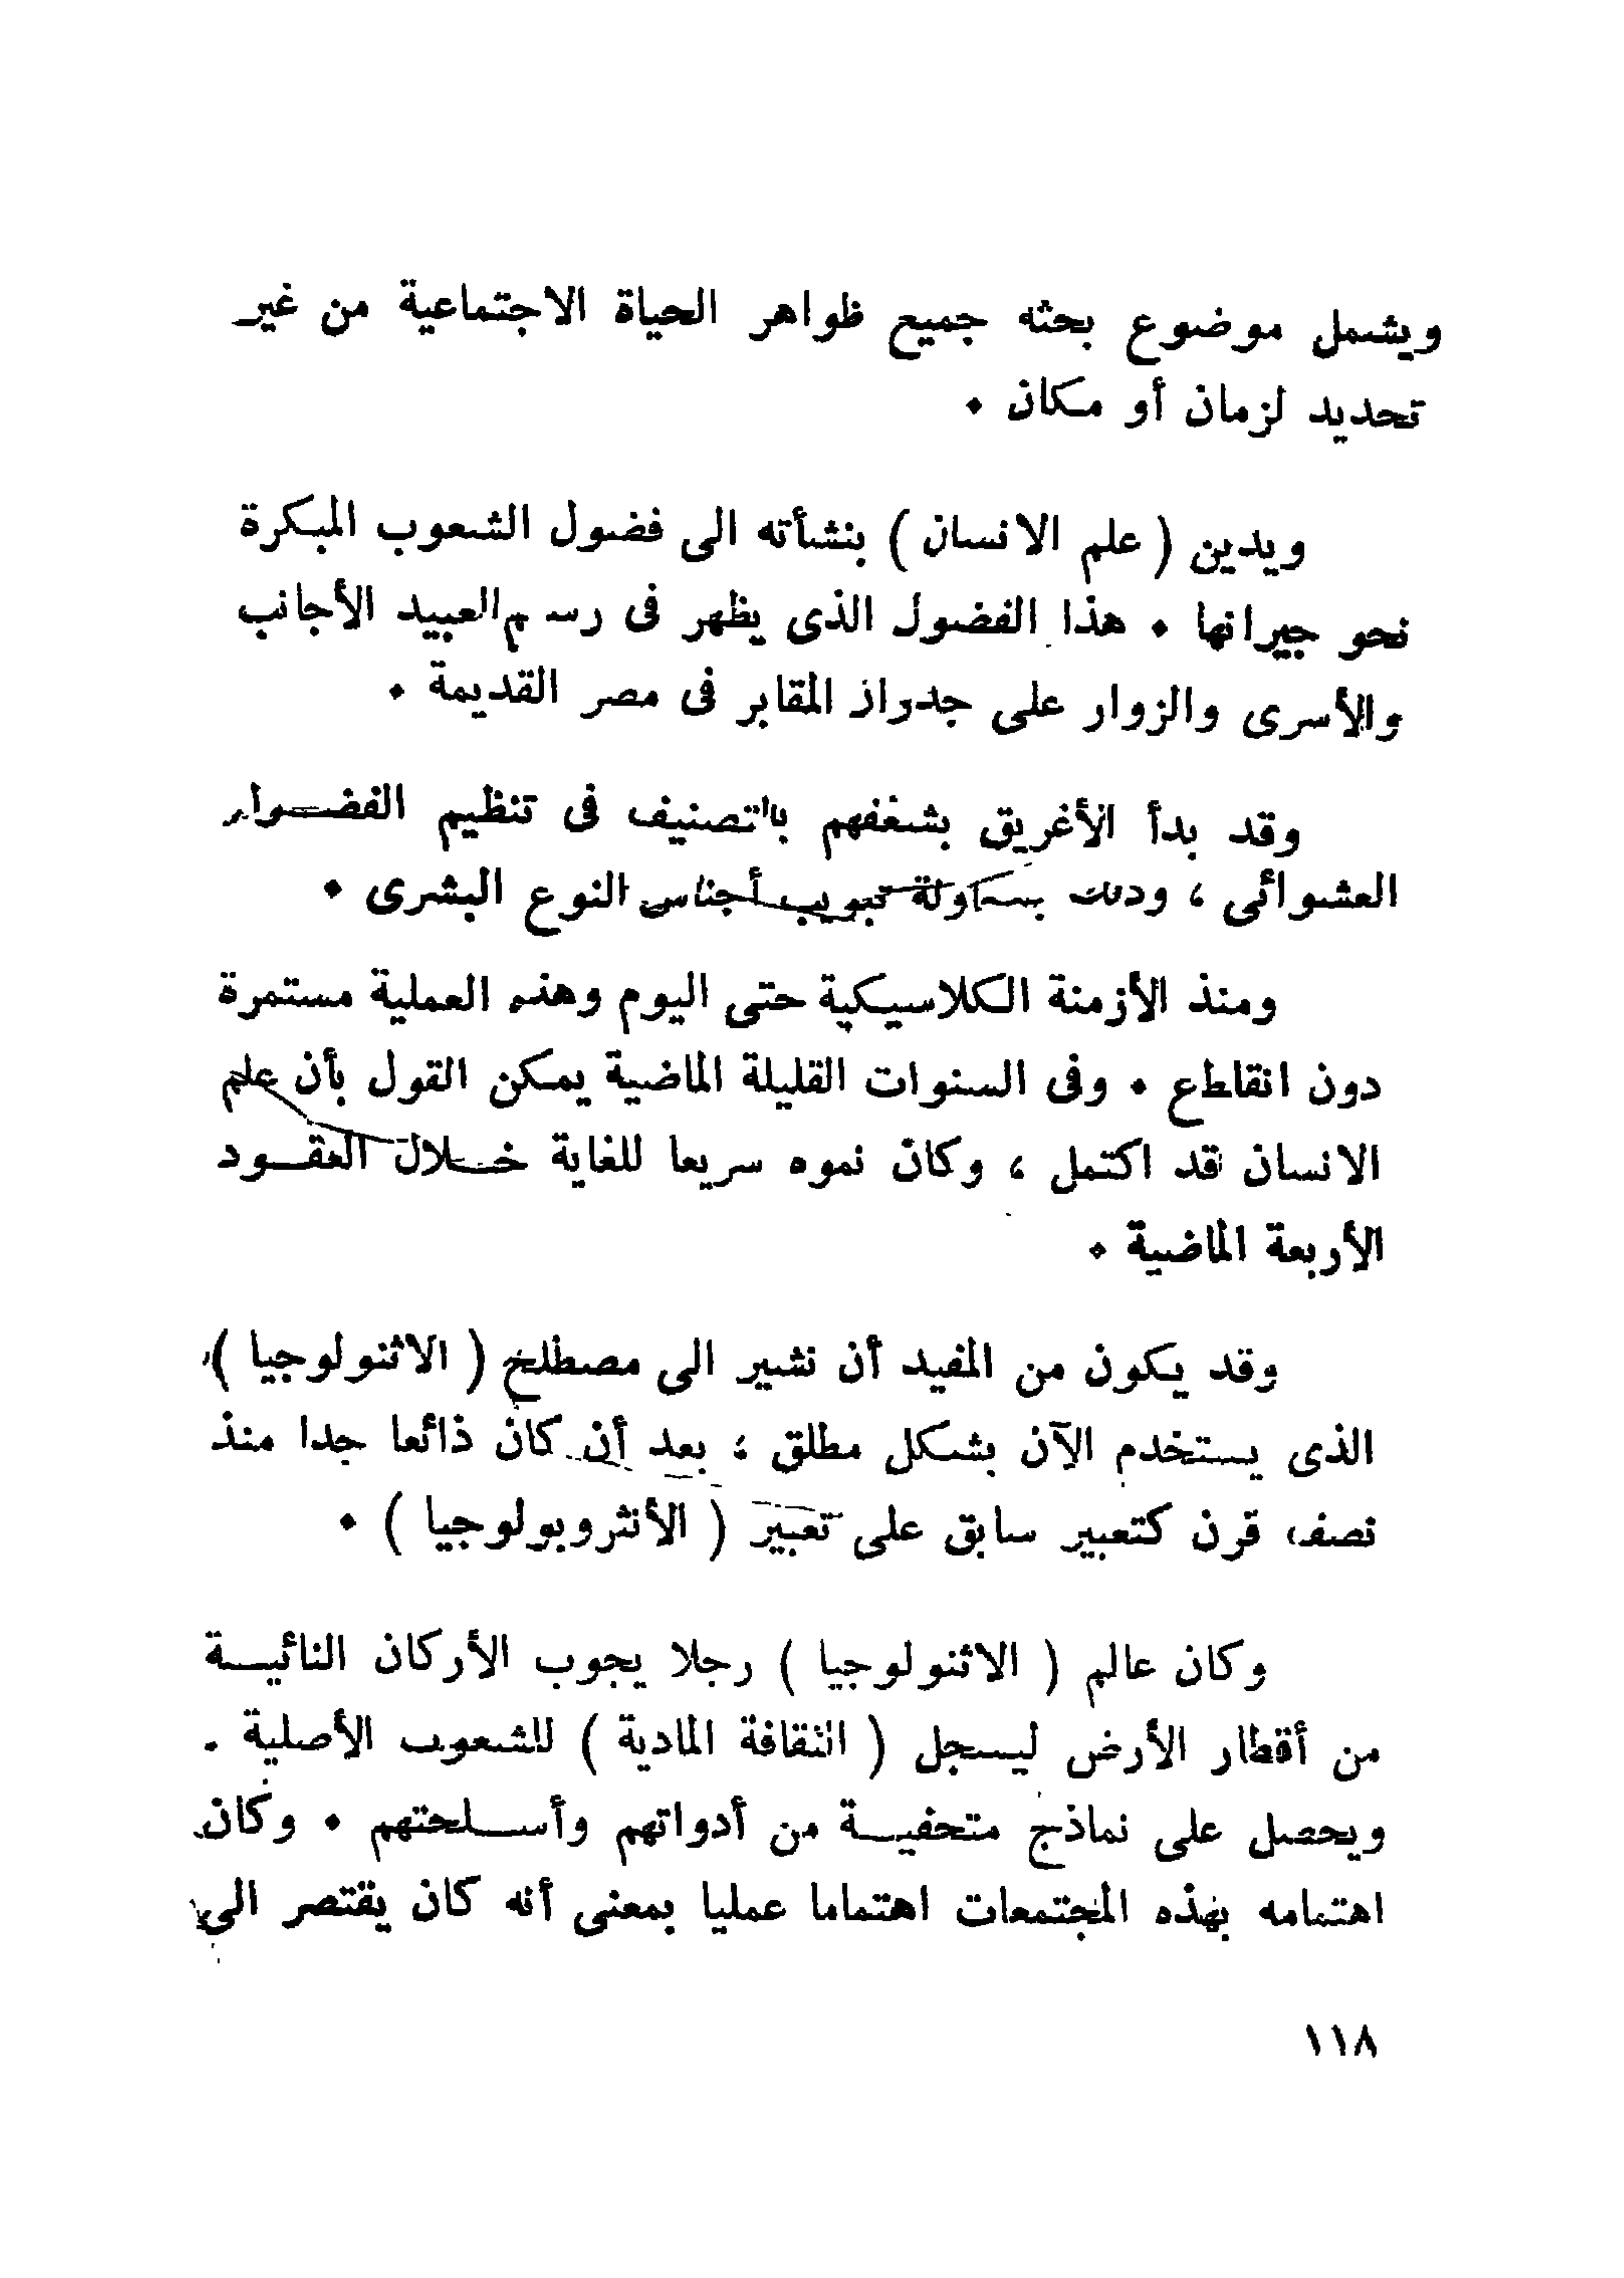 ويشمل موضوع بحثه جميع ظواهر الحياة الاجتماعية من غير
تحديد لزمان أو مكان ٠
ويدين ( علم الانسان ) بنشأته الى فضول الشعوب المبكرة
نحو جيرانها ٠ هذا الفضول الذى يظهر فى رسم العبيد الأجانب
والأسرى والزوار على جدران المقابر فى مصر القديمة ٠
وقد بدأ الأغريق بشغفهم بالتصنيف فى تنظيم الفضول
العشوائى ، وذلك بمحاولة تبويب أجناس النوع البشرى ٠
ومنذ الأزمنة الكلاسيكية حتى اليوم وهذه العملية مستمرة
دون انقاطع ٠ وفى السنوات القليلة الماضية يمكن القول بأن علم
الانسان قد اكتمل ، وكان نموه سريعا للغاية خلال العقود
الأربعة الماضية ٠
وقد يكون من المفيد أن نشير الى مصطلح ( الاثنولوجيا )
الذى يستخدم الآن بشكل مطلق ، بعد أن كان ذائعا جدا منذ
نصف قرن كتعبير سابق على تعبير ( الأنثروبولوجيا ) ٠
وكان عالم ( الاثنولوجيا ) رجلا يجوب الأركان النائية
من أقطار الأرض ليسجل ( الثقافة المادية ) للشعوب الأصلية .
ويحصل على نماذج متحفية من أدواتهم وأسلحتهم ٠ وكان
اهتمامه بهذه المجتمعات اهتماما عمليا بمعنى أنه كان يقتصر الى
١١٨